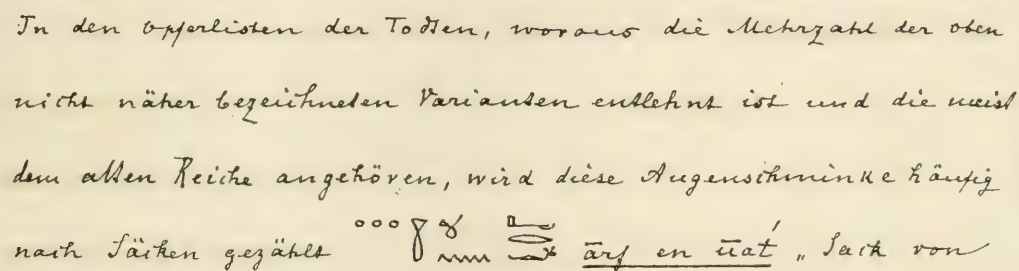 In den Opferlisten der Todten, woraus die Mehrzahl der oben
nicht näher bezeichneten Varianten entlehnt ist und die meist
dem alten Reiche angehören, wird diese Augenschminke häufig
nach Säcken gezählt ārf en ūat́ „Sack von